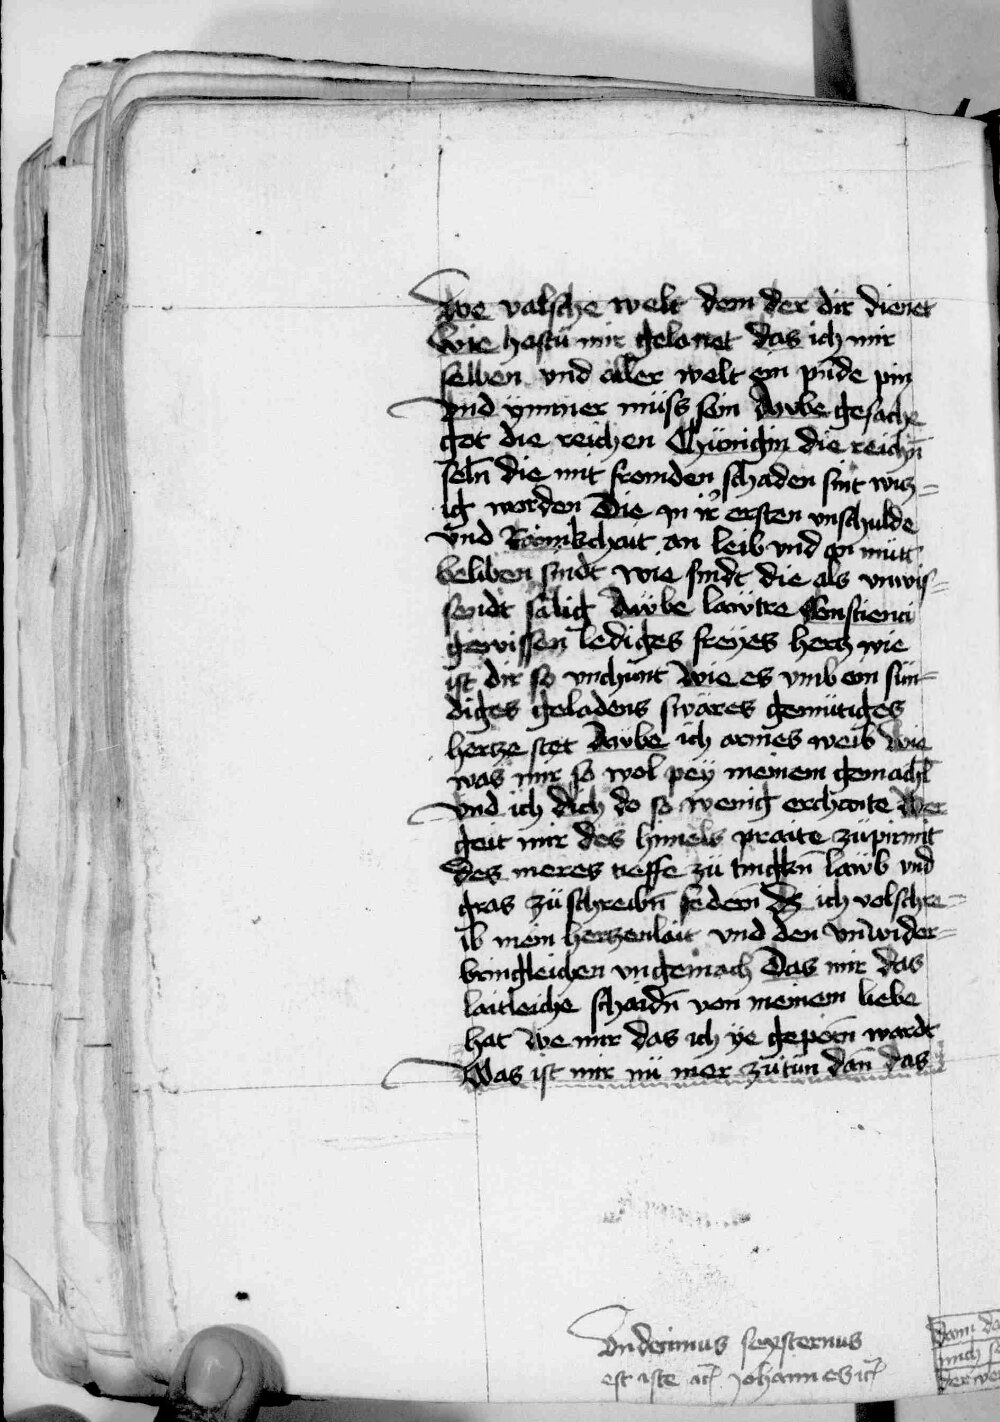 We valsche welt dem der dir dienet
Wie hastu mir gelonet das ich mir
selben vnd aller welt ein pürde pin
vnd ymmer müss sein Awbe gesache
got die reichen Chünigin die reichn̄
seln̄ die mit fromden schaden sint witz=
ig worden Die in ir ersten vnschulde
vnd Rainikchait an leib vnd an mütt
beliben sindt wie sindt die als vnwis=
sendt sälig Awbe lawtre Conscienci
gewissen lediges freyes hertz wie
ist dir so vnchünt wie es vmb ein sün=
diges geladens swäres gemütiges
hertze stet Awbe ich armes weib Wie
was mir so wol pey meinem gemachl
vnd ich dich do so wenig erchante Wer
geit mir des himels praite zü pirmit
des meres tieffe zü tingkn̄ lawb vnd
gras zü schreibn̄ federn̄ Dz ich volschre=
ib mein hertzenlait vnd den vnwider=
bringleichen vngemach Das mir das
laitleiche schaidn̄ von meinem liebe
hat We mir das ich ye geporn̄ wardt
Was ist mir nü mer zütün dan̄ das
Vndecimus sexsternus
est iste
dann da
mich
der we